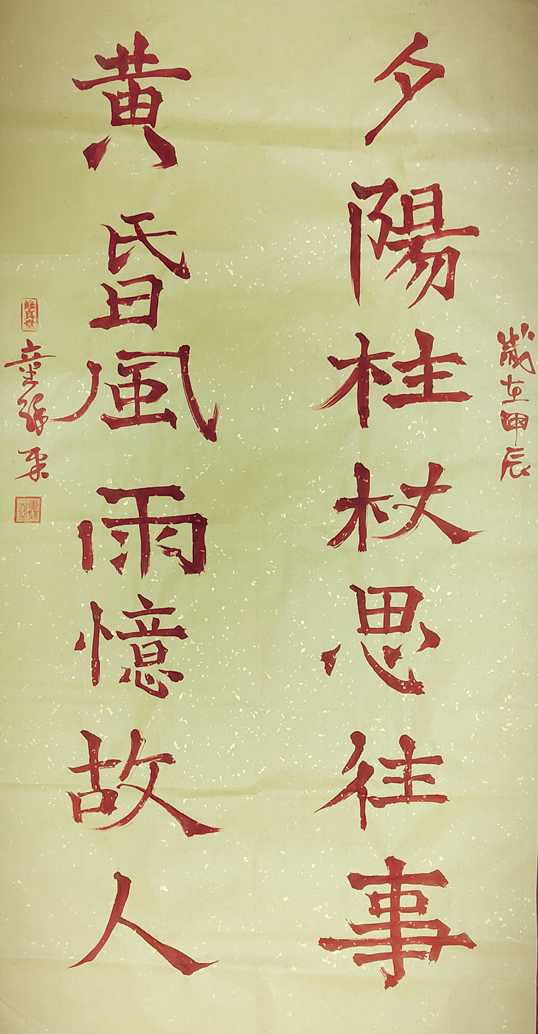 歲在甲辰
夕陽柱杖思往事
黄昏風雨憶故人